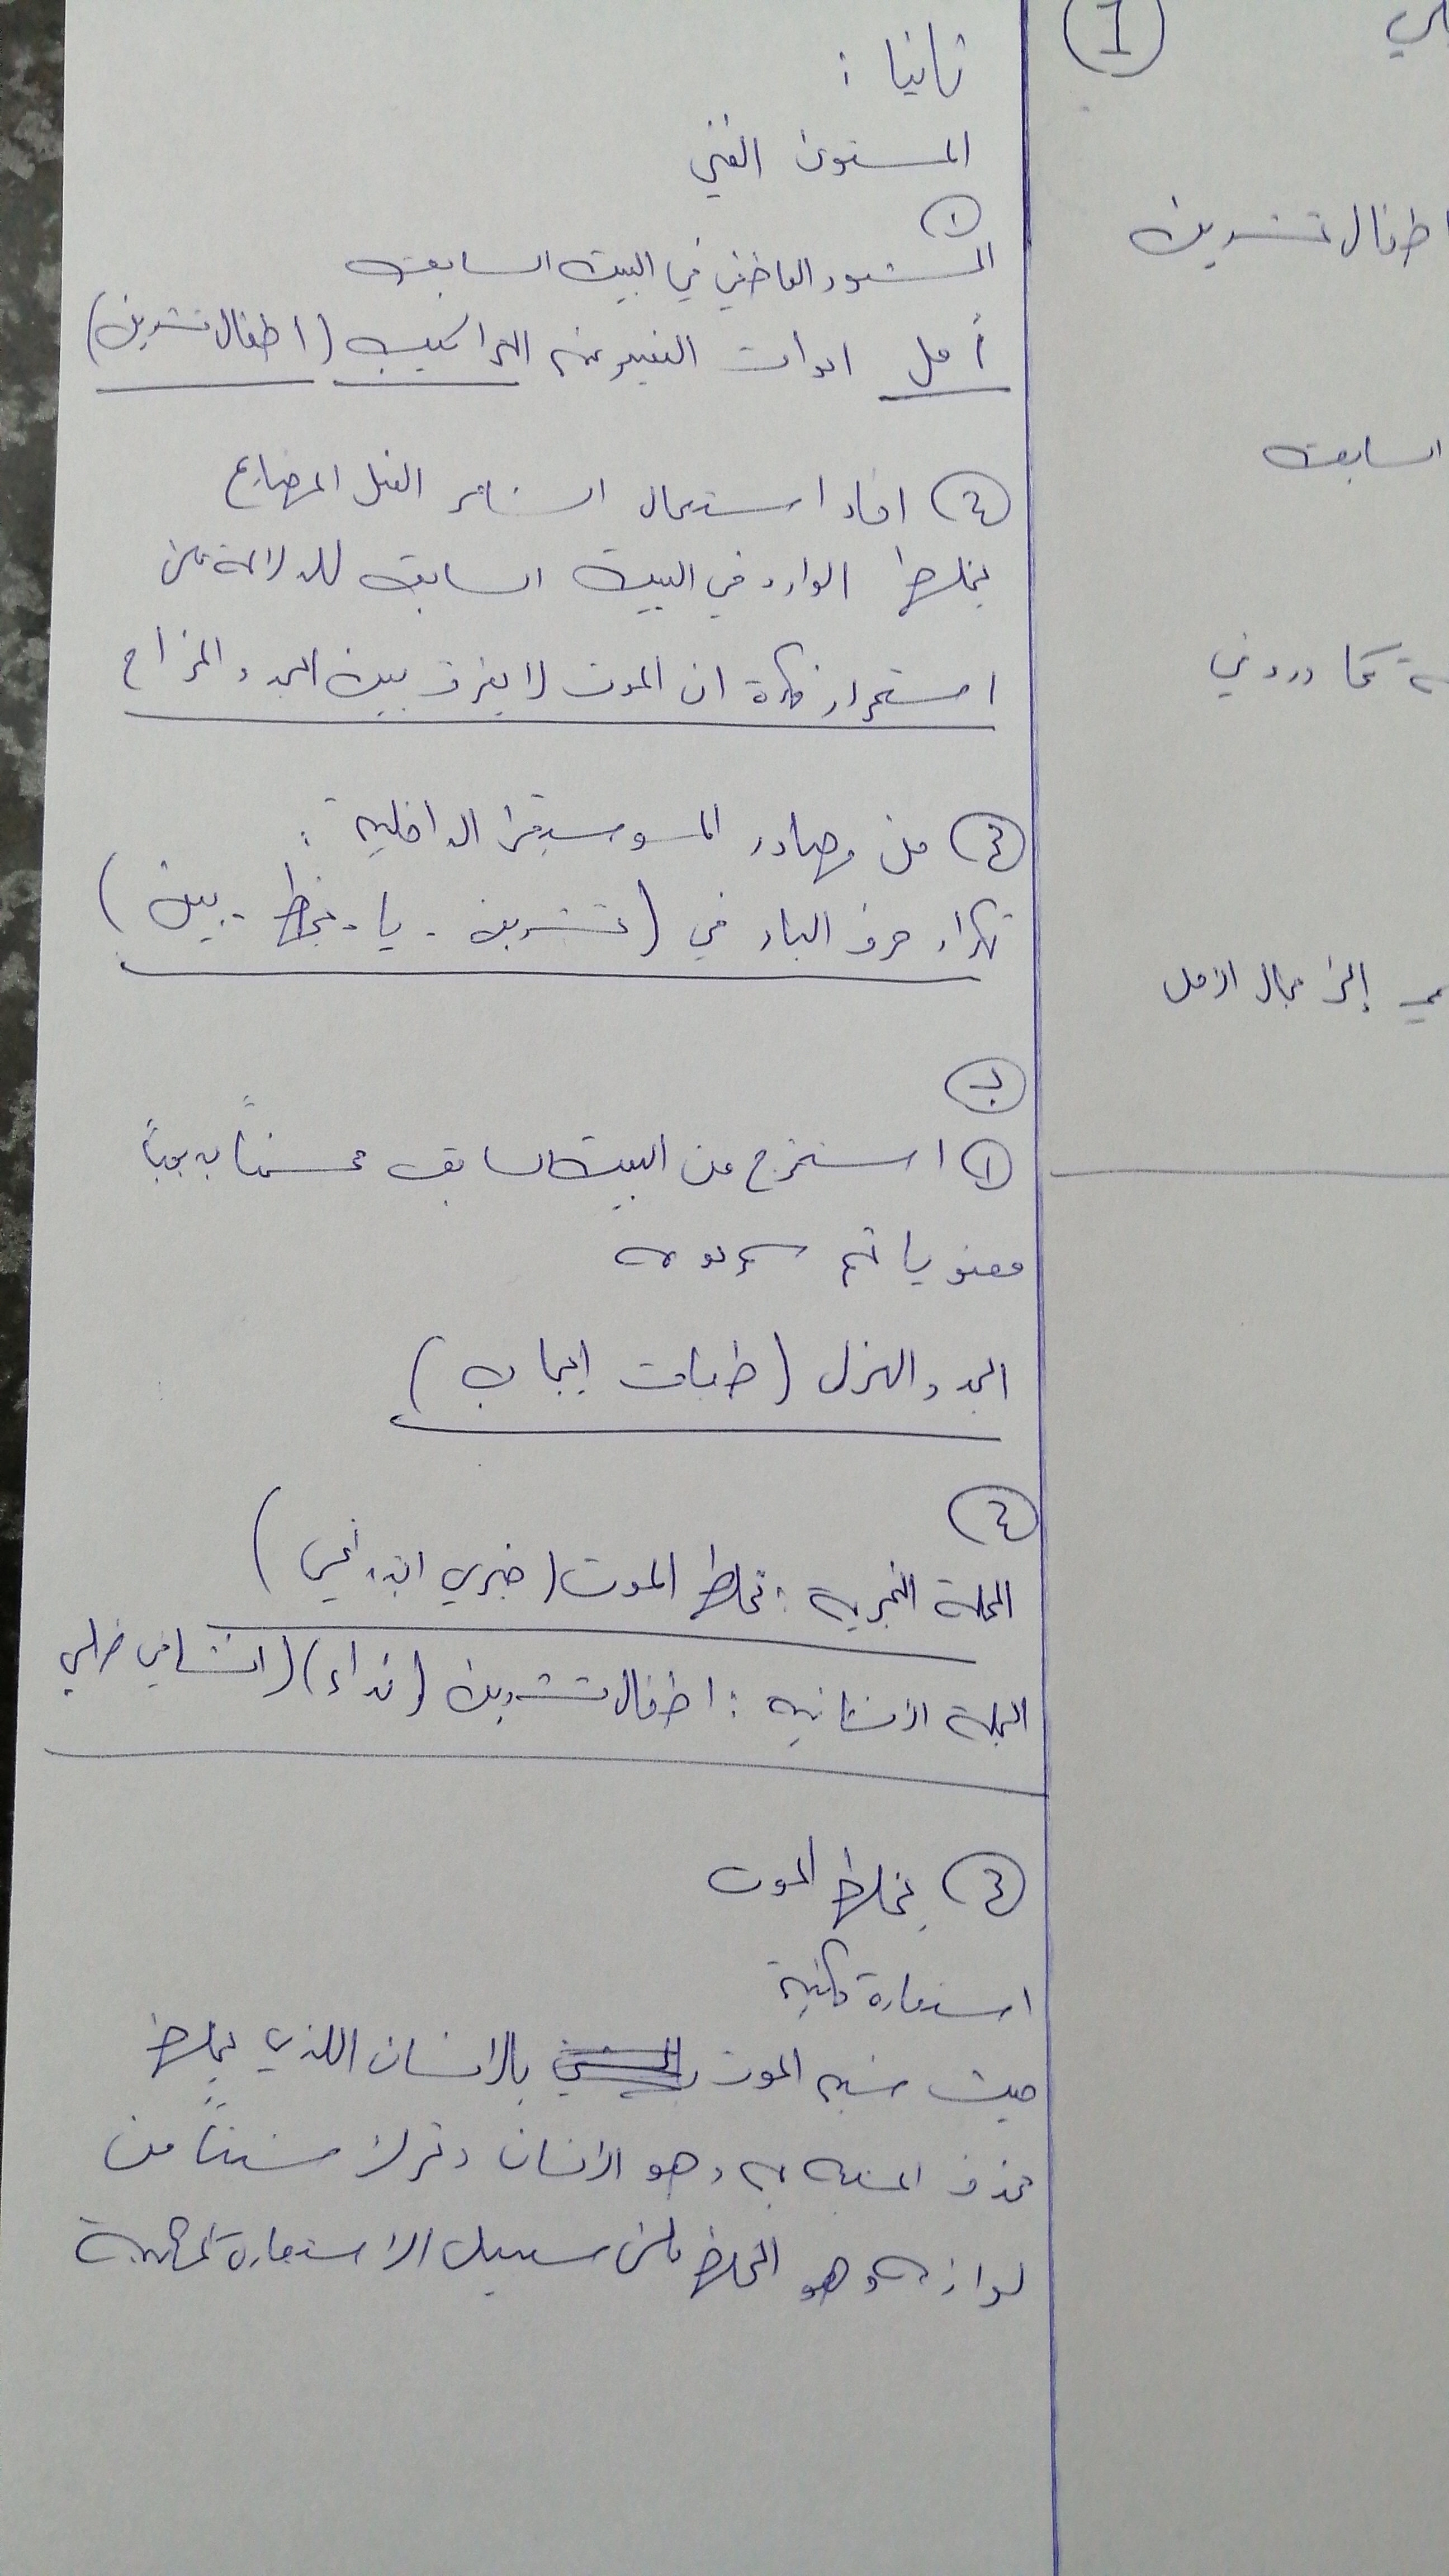 ثانيا :
المستوى الفني
١
الشعور العاطفي في البيت السابق
أمل ادوات التعبير عنه التراكيب (اطفال تشرين)
٢ افاد استعمال الشاعر الفعل المضارع
يخلط الوارد في البيت السابق للدلالة على
استمرار فكرة ان الموت لا يفرق بين الجد والمزاح
٣ من مصادر الموسيقى الداخلية :
تكرار حرف الياء في (تشرين - يا - يخلط - بين)
ب
١ استخرج من البيت السابق محسناً بديعياً
معنويا ثم سم نوعه
الجد والهزل (طباق ايجاب)
٢
الجملة الخبرية : يخلط الموت (خبري ابتدائي)
الجملة الانشائية : اطفال تشرين (نداء) (انشائي طلبي
٣ يخلط الموت
استعارة مكنية
حيث شبه الموت بالانسان اللذي يخلط
حذف المشبه به وهو الانسان وترك شيئاً من
لوازمه وهو الخلط على سبيل الاستعارة المكنية
1
اطفال تشرين
السابق
كما وردني
إلى مجال الامل